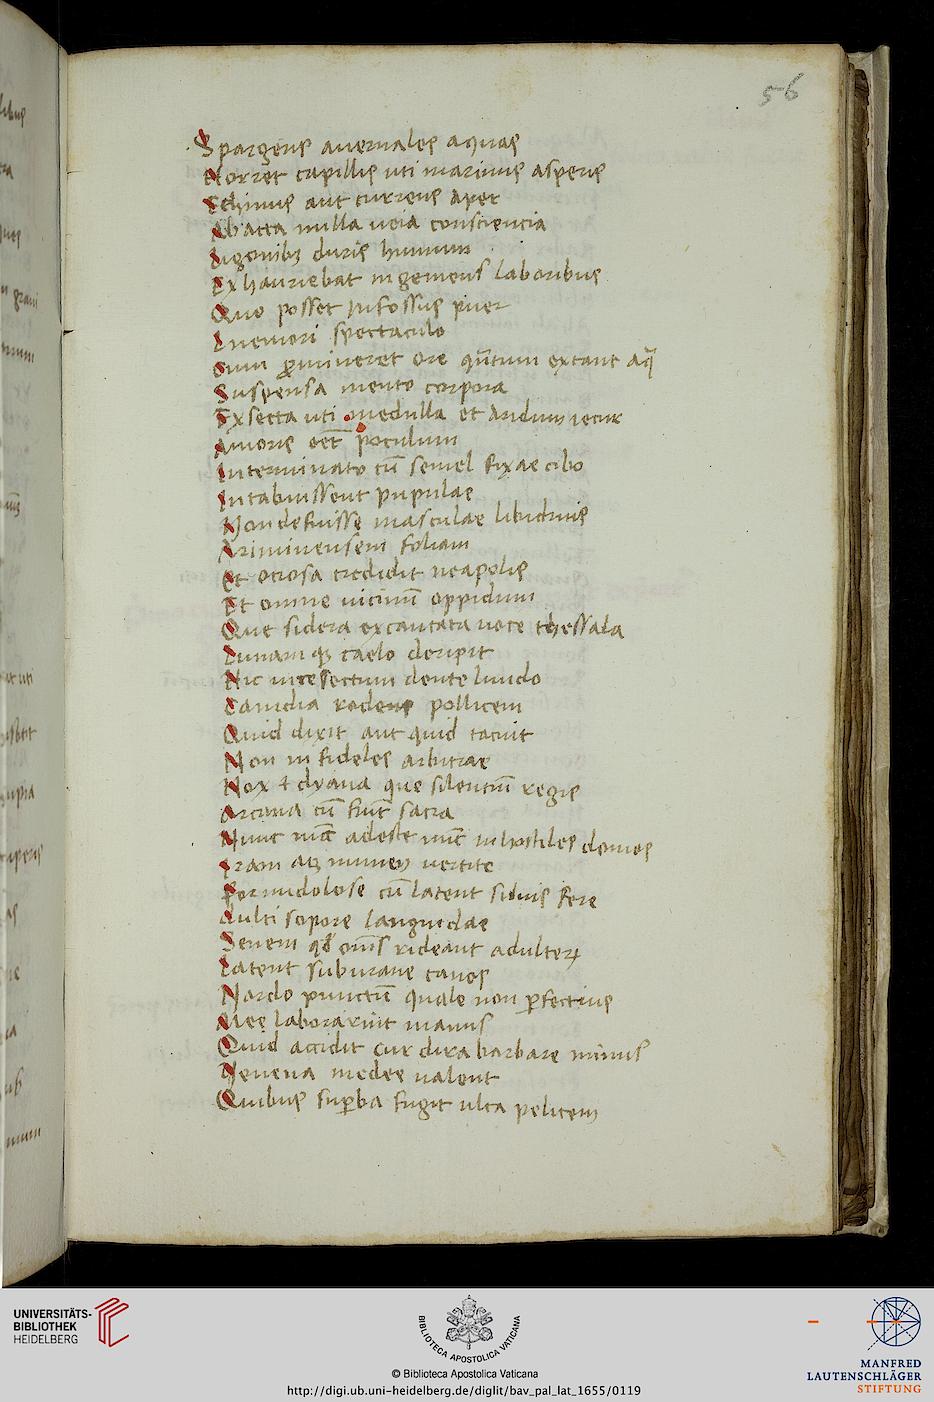 56
Spargens auernales aquas
Horret capillis uti marinus asperis
Echinus aut currens aper
Abacta nulla ueia consciencia
Ligonibꝫ duris humum
Exhauriebat ingemens laboribus
Quo posset infossus puer
Inemori spectaculo
Cum ꝓmineret ore qũtum extant aq̃
Suspensa mento corpora
Exsecta uti medulla et aridum iecur
Amoris eēt poculum
Interminato cū semel fixae cibo
Intabuissent pupulae
Non defuisse masculae libidinis
Ariminensem foliam
Et ociosa credidit neapolis
Et omne uicinū oppidum
Que sidera excantata uoce thessala
Lunamqꝫ caelo deripit
Hic inresectum dente liuido
Canidia rodens pollicem
Quid dixit aut quid tacuit
Non infideles arbitrae
Nox & dyana que silentiū regis
Arcana cū fiūt sacra
Nunc nūc adeste nūc inhostiles domos
Iram atqꝫ numen uertite
Formidolose cū latent siluis fere
Dulci sopore languidae
Senem qđ om̄s rideant adulterꝝ
Latent suburane canes
Nardo punctū quale non ꝑfectius
Mee laborarint manus
Quid accidit cur dira barbare minus
Venena medee ualent
Quibus suꝑba fugit ulta pelicem
UNIVERSITÄTS-
BIBLIOTHEK
HEIDELBERG
BIBLIOTECA APOSTOLICA VATICANA
© Biblioteca Apostolica Vaticana
http://digi.ub.uni-heidelberg.de/diglit/bav_pal_lat_1655/0119
MANFRED
LAUTENSCHLÄGER
STIFTUNG